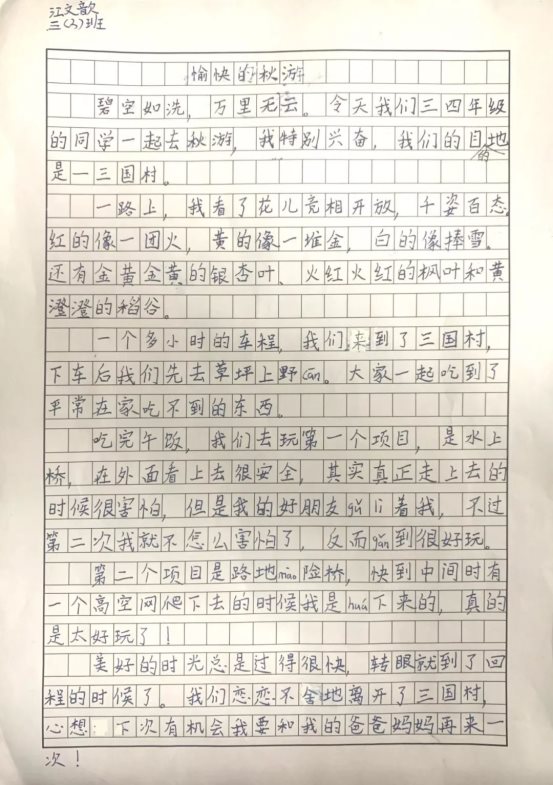 江文歆
三(3)班
愉快的秋游
碧空如洗，万里无云。今天我们三四年级
的同学一起去秋游，我特别兴奋，我们的目的地
是一三国村。
一路上，我看了花儿竞相开放，千姿百态。
红的像一团火，黄的像一堆金，白的像捧雪。
还有金黄金黄的银杏叶、火红火红的枫叶和黄
澄澄的稻谷。
一个多小时的车程，我们来到了三国村，
下车后我们先去草坪上野cān。大家一起吃到了
平常在家吃不到的东西。
吃完午饭，我们去玩第一个项目，是水上
桥，在外面看上去很安全，其实真正走上去的
时候很害怕，但是我的好朋友gǔ lì着我，不过
第二次我就不怎么害怕了，反而gǎn到很好玩。
第二个项目是路地mào险桥，快到中间时有
一个高空网爬下去的时候我是huá下来的，真的
是太好玩了！
美好的时光总是过得很快，转眼就到了回
程的时候了。我们恋恋不舍地离开了三国村，
心想：下次有机会我要和我的爸爸妈妈再来一
次！